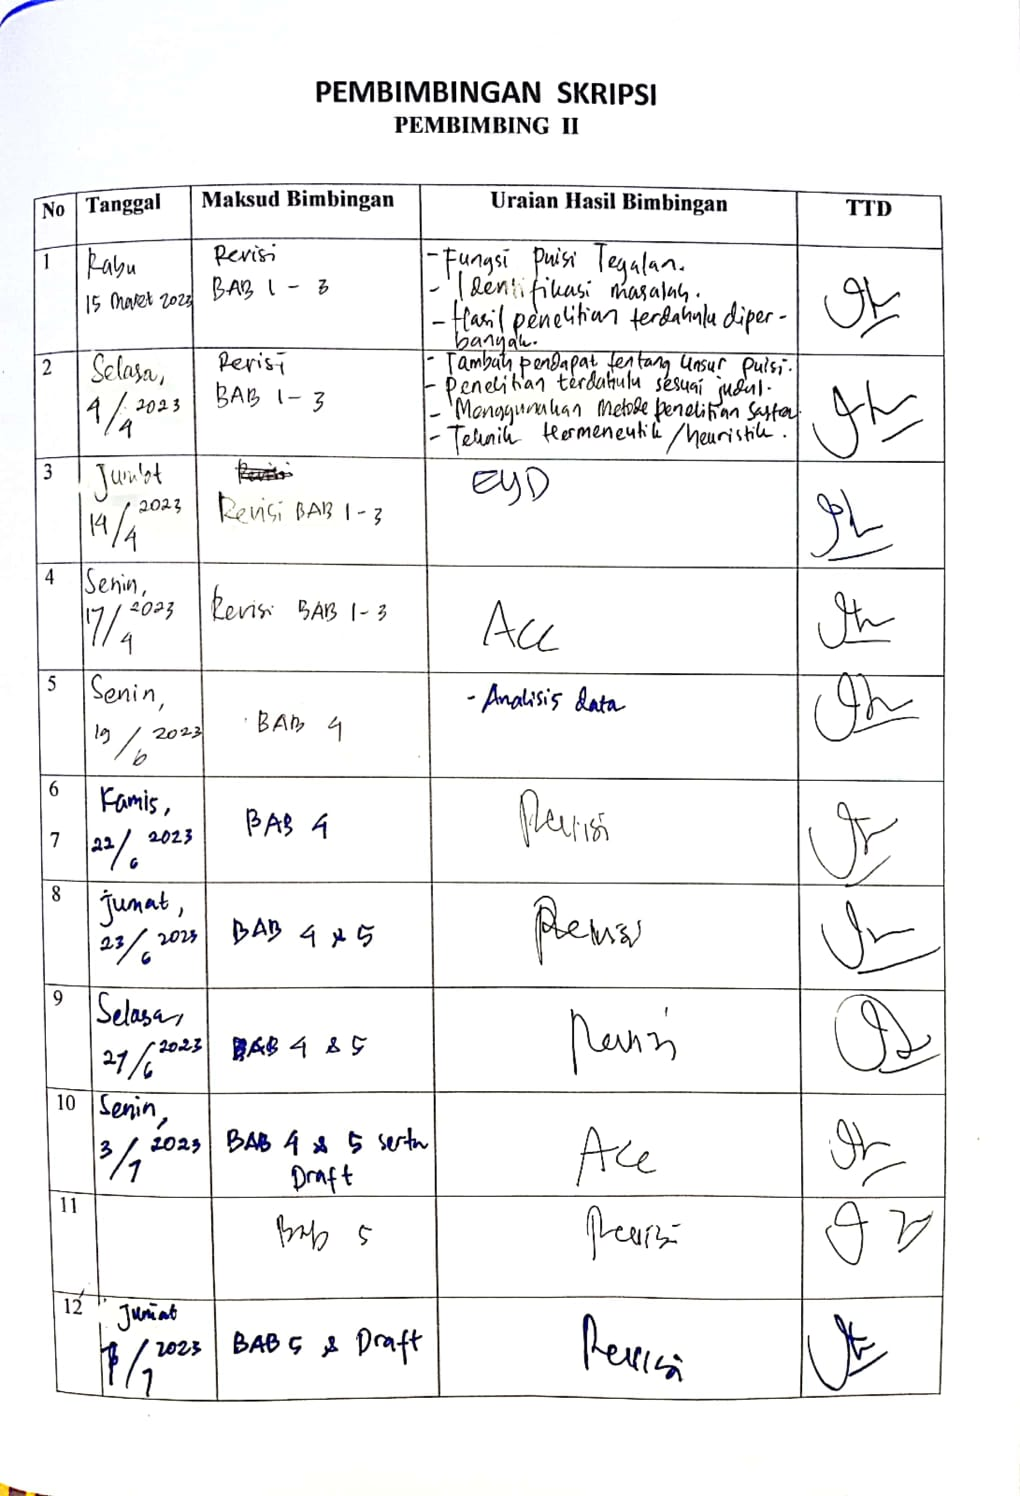 PEMBIMBINGAN SKRIPSI
PEMBIMBING II
No Tanggal Maksud Bimbingan Uraian Hasil Bimbingan TTD
1 Rabu
15 Maret 2023
Revisi
BAB 1 - 3
- Fungsi Puisi Tegalan.
- Identifikasi masalah.
- Hasil penelitian terdahulu diper-
banyak.
2 Selasa,
4/4 2023
Revisi
BAB 1 - 3
- Tambah pendapat tentang Unsur Puisi.
- Penelitian terdahulu sesuai judul.
- Menggunakan Metode penelitian Sastra.
- Teknik Hermeneutik / heuristik.
3 Jum'at
14/4 2023
Revisi BAB 1 - 3
EYD
4 Senin,
17/4 2023
Revisi BAB 1 - 3
Acc
5 Senin,
19/6 2023
BAB 4
- Analisis data
6
7
Kamis,
22/6 2023
BAB 4
Revisi
8 Jumat,
23/6 2023
BAB 4 & 5
Revisi
9 Selasa,
27/6 2023
BAB 4 & 5
Revisi
10 Senin,
3/7 2023
BAB 4 & 5 serta
Draft
Acc
11
Bab 5
Revisi
12 Jum'at
/7 2023
BAB 5 & Draft
Revisi